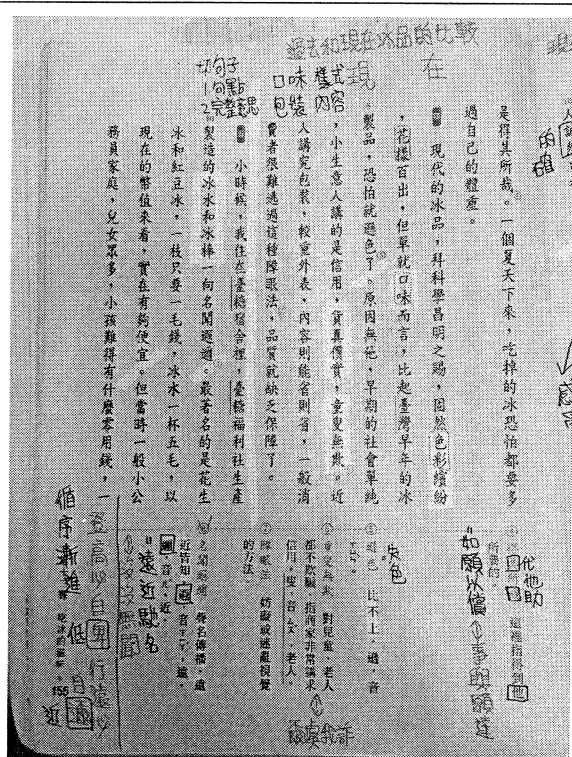 過去和現在冰品的比較
現 在
+1.句子
1.句點
2.完整意思
口味 樣式
包裝 內容
的確
是得其所哉。一個夏天下來，吃掉的冰恐怕都要多
過自己的體重。
現代的冰品，拜科學昌明之賜，固然色彩繽紛
，花樣百出，但單就口味而言，比起臺灣早年的冰
製品，恐怕就遜色了。原因無他，早期的社會單純
，小生意人講的是信用，貨真價實，童叟無欺。近
人講究包裝，較重外表，內容則能省則省，一般消
費者很難逃過這種障眼法，品質就缺乏保障了。
小時候，我住在臺糖宿舍裡，臺糖福利社生產
製造的冰水和冰棒一向名聞遐邇。最著名的是花生
冰和紅豆冰，一枝只要一毛錢，冰水一杯五毛，以
現在的幣值來看，實在有夠便宜。但當時一般小公
務員家庭，兒女眾多，小孩難得有什麼零用錢，一
代他助
這裡指得到他
所要的。
如願以償↔事與願違
失色
遜色 比不上。遜，音
童叟無欺 對兒童、老人
都不欺騙，指商家非常講求
信用。叟，音ㄙㄡˇ，老人。
爾虞我詐
障眼法 妨礙或迷亂視覺
的方法。
名聞遐邇 聲名傳播，遠
近皆知。遐，音ㄒㄧㄚˊ，遠。
邇，音ㄦˇ，近。
遠近馳名
登高必自卑 行遠必自邇
低 近
循序漸進
155